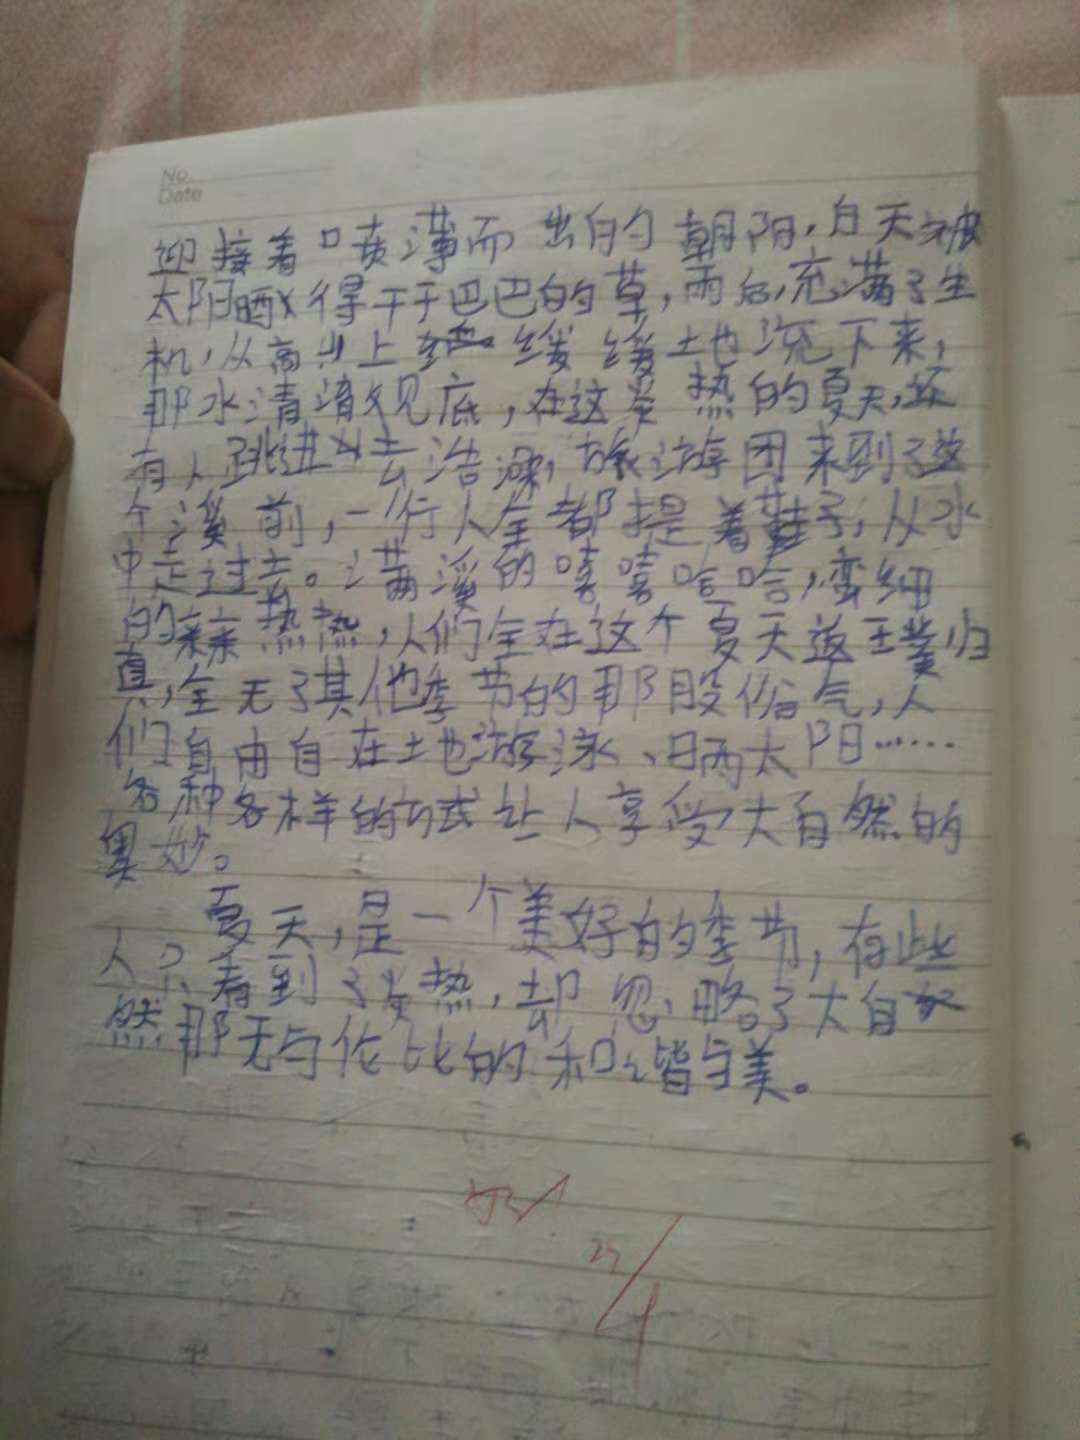 No.
Date
迎接着喷薄而出的朝阳,白天被
太阳晒得干干巴巴的草,雨后,充满了生
机,从高山上缓缓土地流下来,
那水清澈见底,在这炎热的夏天,还
有人跳进去洗澡,旅游团来到了这
个溪前,一行人全都提着鞋子,从水
中走过去。满溪的嘻嘻哈哈,
的亲亲热热,人们全在这个夏天返王璞归
真,全无了其他季节的那股俗气,人
们自由自在土地游泳、晒太阳……
各种各样的方式让人享受大自然的
奥妙。
夏天,是一个美好的季节,有些
人只看到了炎热,却忽略了大自
然那无与伦比的和谐与美。